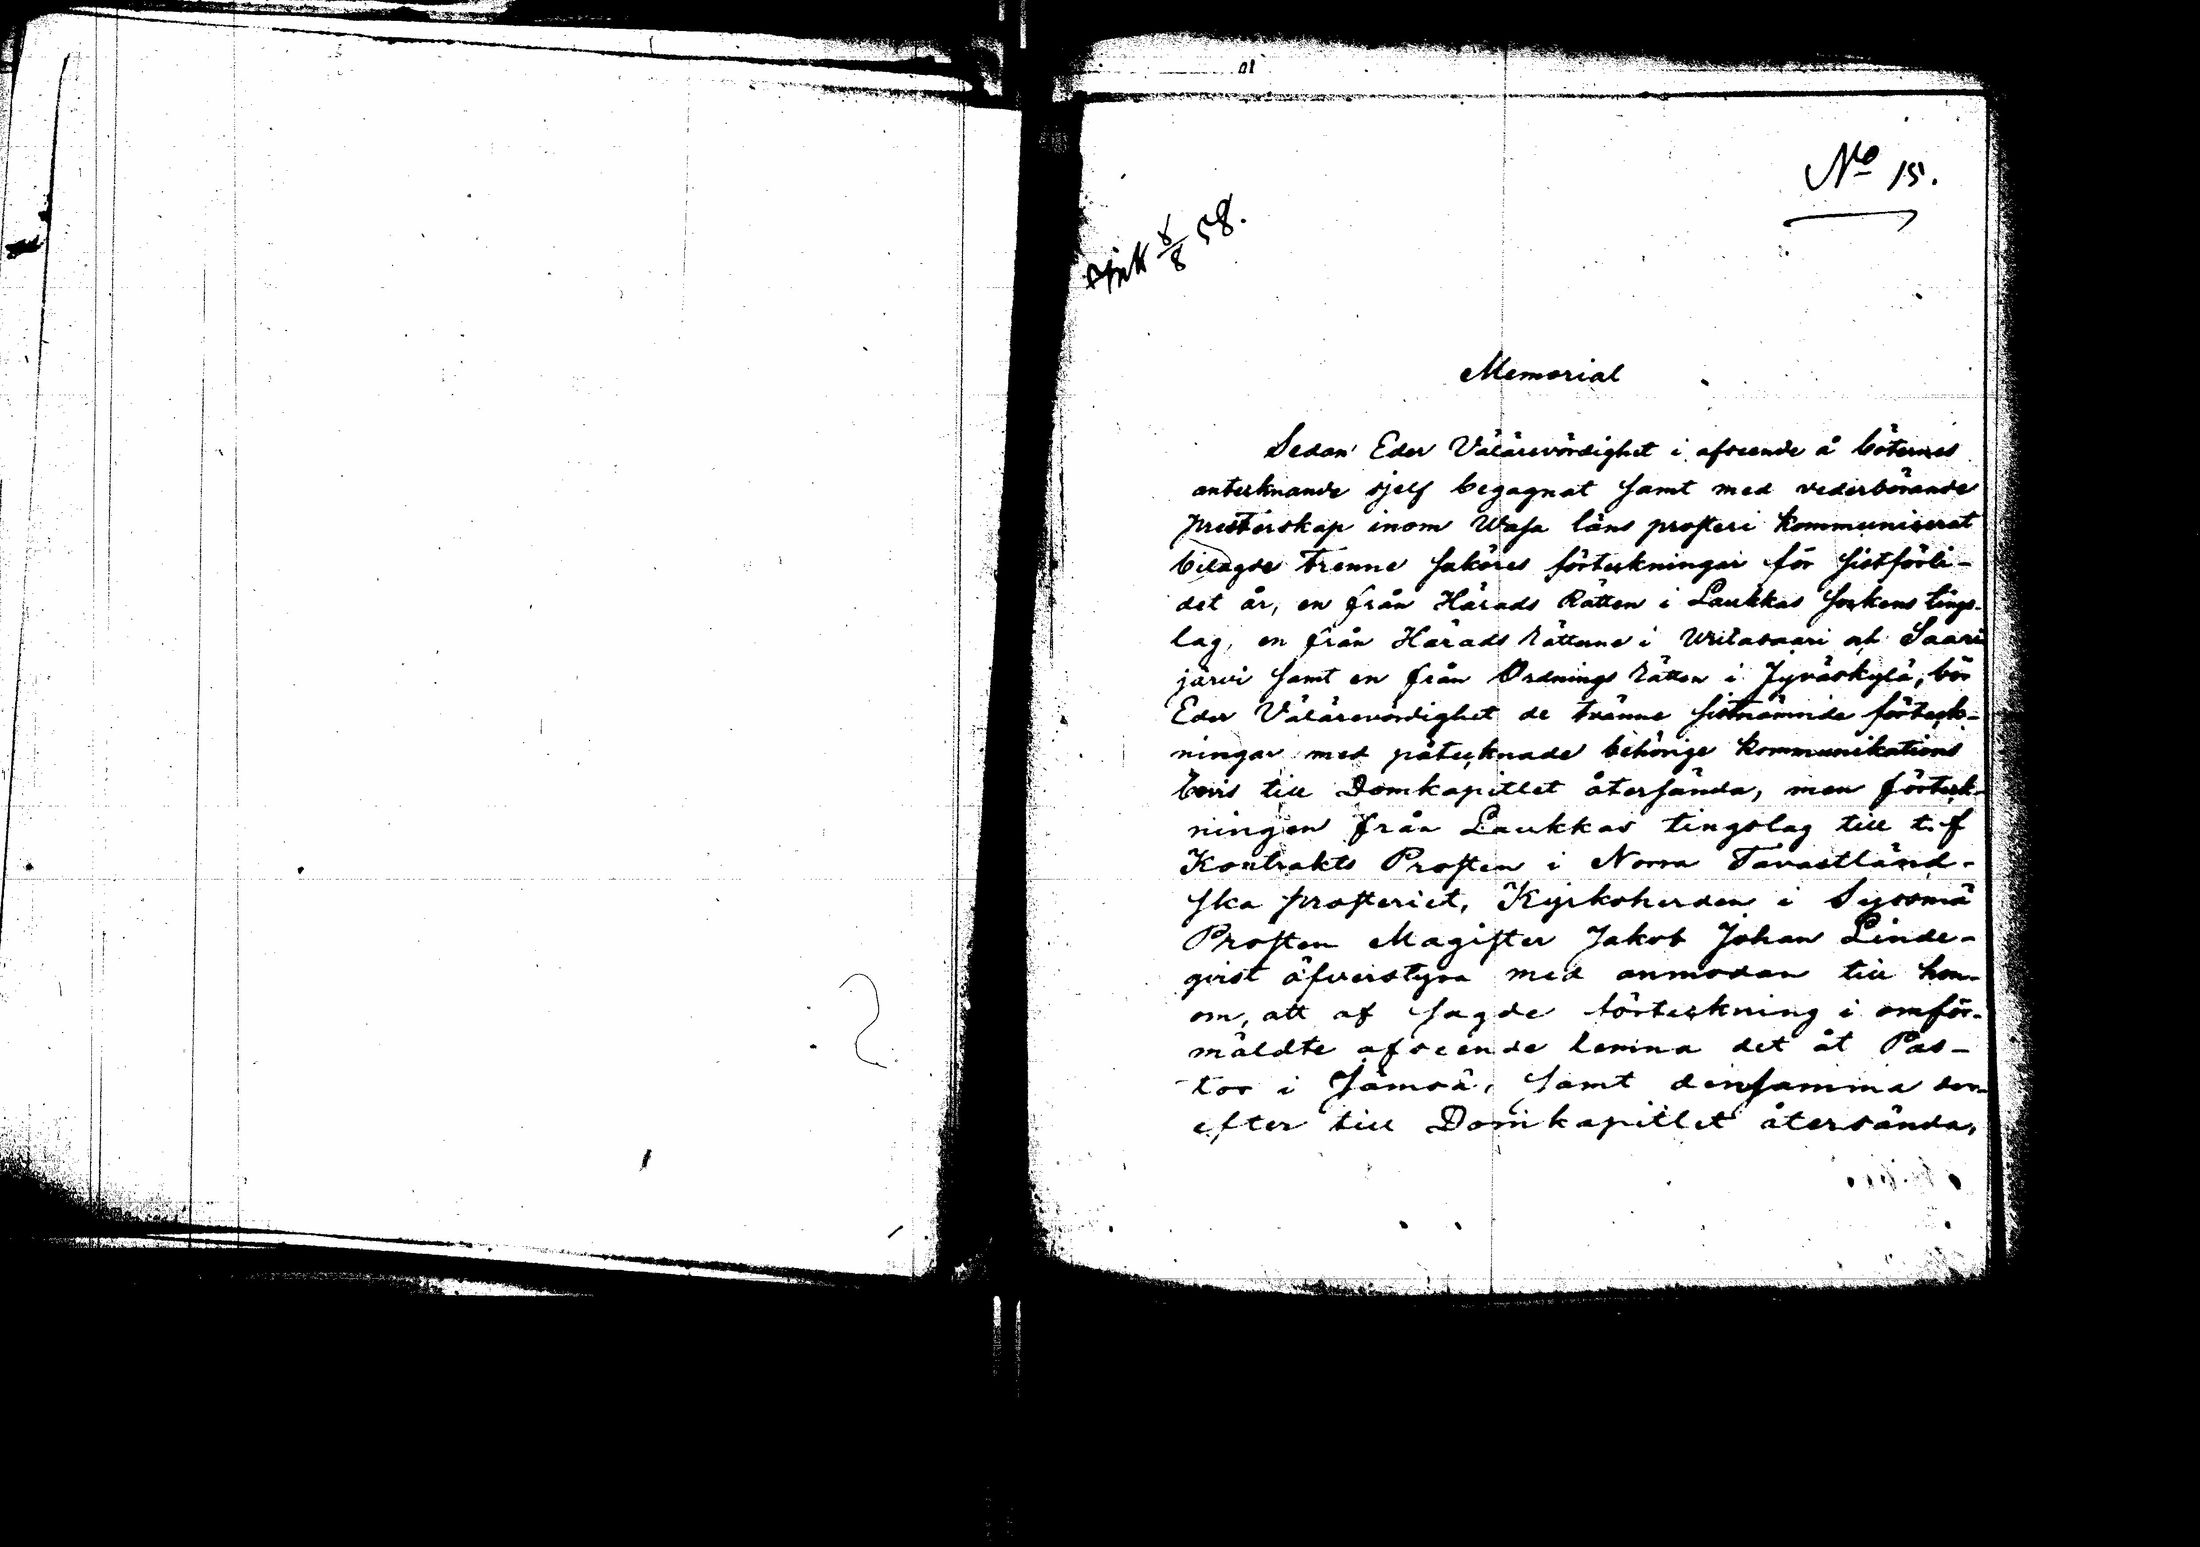 No 15.
Ank 8/8 58.
Memorial
Sedan Eder Välärevördighet i afseende å böternes
anteknande sjelf begagnat samt med vederbörande
presterskap inom Wasa läns prosteri kommunicerat
bilagde trenne saköres förtekningar för sistförli-
det år, en från Härads Rätten i Laukkas sockens tings-
lag, en från Härads Rätterne i Witasaari och Saari
järvi samt en från Ordnings Rätten i Jyväskylä, bör
Eder Välärevördighet de tvänne sistnämnde förteck-
ningar med påtecknade behörige kommunikations
bevis till Domkapitlet återsända, men förteck-
ningen från Laukkas tingslag till t. f
Kontrakts Prosten i Norra Tavastländ-
ska prosteriet, Kyrkoherden i Sysmä
Prosten Magister Jakob Johan Linde-
qvist öfverstyra med anmodan till hon-
om, att af sagde förteckning i omför-
mäldte afseende lemna det åt Pas-
tor i Jämsä, samt densamma der-
efter till Domkapitlet återsända,